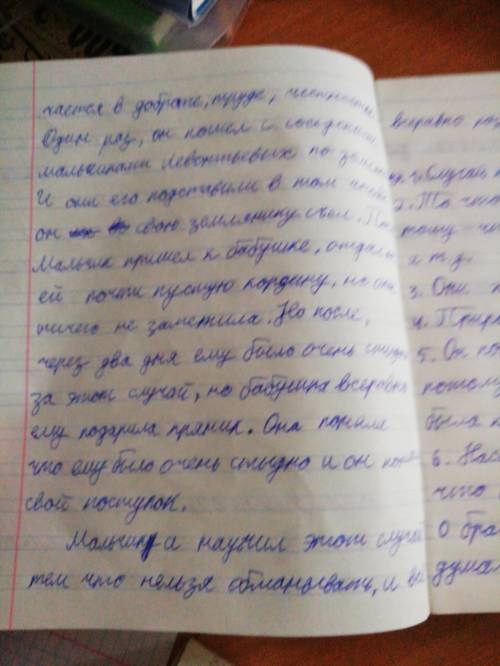 чается в доброте, труде, честности
Один раз, он пошел с соседскими
мальчиками Левонтьевых по земля
И они его подставили в том чтобы
он свою землянику съел. По
Мальчик пришел к бабушке, отдал
ей почти пустую корзину, но она
ничего не заметила. Но после,
через два дня ему было очень стыдно
за этот случай, но бабушка всеравно
ему подарила пряник. Она поняла
что ему было очень стыдно и он понял
свой поступок.
Мальчика научил этот случай
тем что нельзя обманывать, и
всеравно
Случай
2. То что
тому-что
и т.д.
3. Они
4. Прир
5. Он по
потому
была
6. Нас
что
О бра
думал